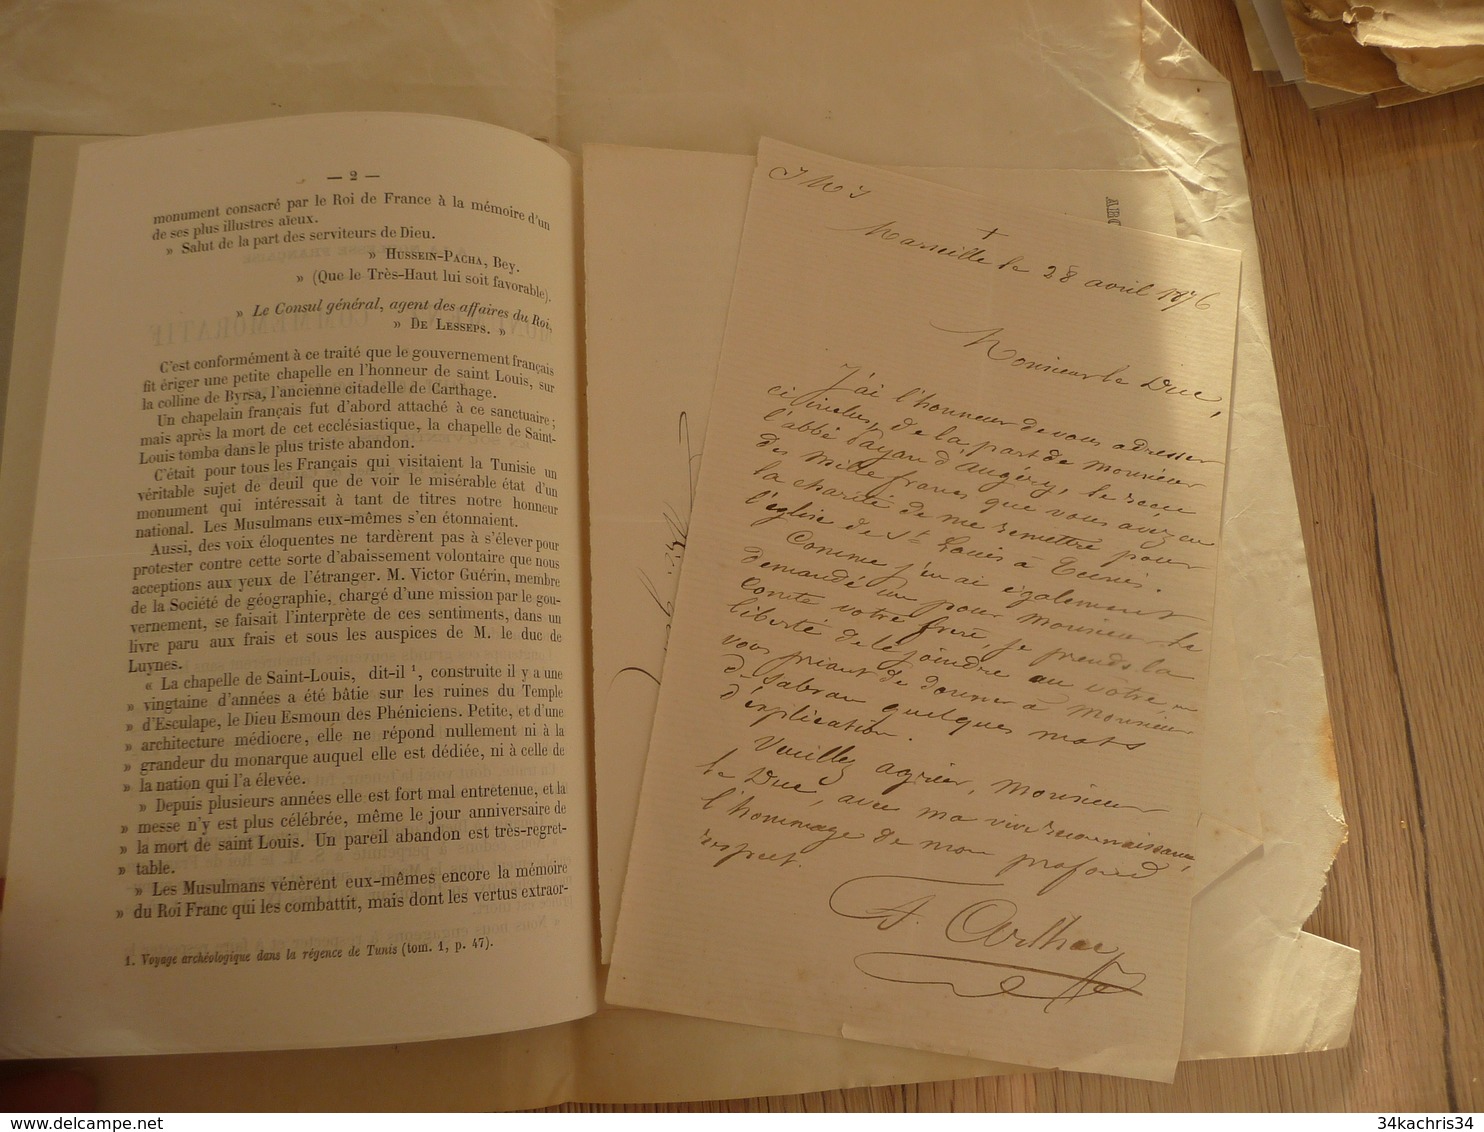 — 2 —
monument consacré par le Roi de France à la mémoire d'un
de ses plus illustres aïeux.
» Salut de la part des serviteurs de Dieu.
» HUSSEIN-PACHA, Bey.
» (Que le Très-Haut lui soit favorable).
» Le Consul général, agent des affaires du Roi,
» DE LESSEPS. »
C'est conformément à ce traité que le gouvernement français
fit ériger une petite chapelle en l'honneur de saint Louis, sur
la colline de Byrsa, l'ancienne citadelle de Carthage.
Un chapelain français fut d'abord attaché à ce sanctuaire ;
mais après la mort de cet ecclésiastique, la chapelle de Saint-
Louis tomba dans le plus triste abandon.
C'était pour tous les Français qui visitaient la Tunisie un
véritable sujet de deuil que de voir le misérable état d'un
monument qui intéressait à tant de titres notre honneur
national. Les Musulmans eux-mêmes s'en étonnaient.
Aussi, des voix éloquentes ne tardèrent pas à s'élever pour
protester contre cette sorte d'abaissement volontaire que nous
acceptions aux yeux de l'étranger. M. Victor Guérin, membre
de la Société de géographie, chargé d'une mission par le gou-
vernement, se faisait l'interprète de ces sentiments, dans un
livre paru aux frais et sous les auspices de M. le duc de
Luynes.
« La chapelle de Saint-Louis, dit-il ¹, construite il y a une
» vingtaine d'années a été bâtie sur les ruines du Temple
» d'Esculape, le Dieu Esmoun des Phéniciens. Petite, et d'une
» architecture médiocre, elle ne répond nullement ni à la
» grandeur du monarque auquel elle est dédiée, ni à celle de
» la nation qui l'a élevée.
» Depuis plusieurs années elle est fort mal entretenue, et la
» messe n'y est plus célébrée, même le jour anniversaire de
» la mort de saint Louis. Un pareil abandon est très-regret-
» table.
» Les Musulmans vénèrent eux-mêmes encore la mémoire
» du Roi Franc qui les combattit, mais dont les vertus extraor-
1. Voyage archéologique dans la régence de Tunis (tom. 1, p. 47).
+
Marseille le 28 avril 1876
Monsieur le Duc,
J'ai l'honneur de vous adresser
ci inclus, de la part de Monsieur
l'abbé Payan d'Augéry, le reçu
des mille francs que vous avez eu
la charité de me remettre pour
l'église de St Louis à Tunis.
Comme j'en ai également
demandé un pour Monsieur le
Comte votre frère, je prends la
liberté de le joindre au vôtre, en
vous priant de donner à Monsieur
de Sabran quelques mots
d'explication.
Veuillez agréer, Monsieur
le Duc, avec ma vive reconnaissance,
l'hommage de mon profond
respect.
34kachris34
www.delcampe.net
34kachris34